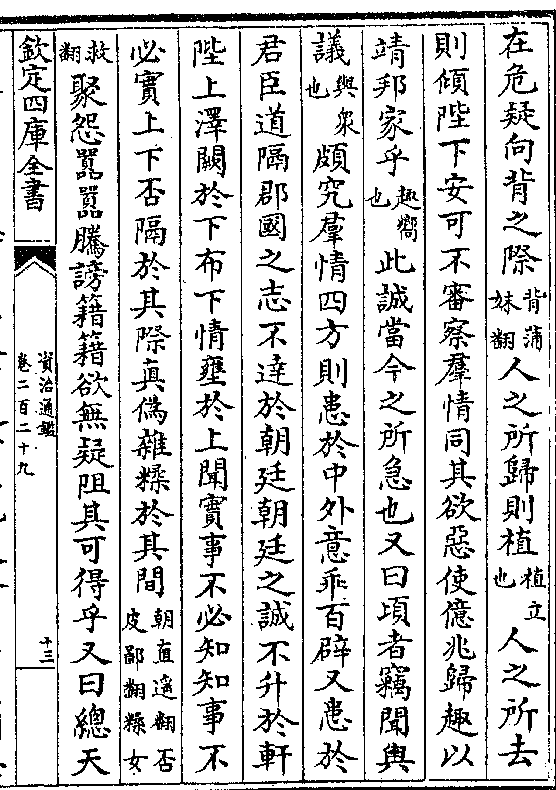 在危疑向背之際背蒲妹翻人之所歸則植植立也人之所去
則傾陛下安可不審察羣情同其欲惡使億兆歸趣以
靖邦家乎趣嚮也此誠當今之所急也又曰頃者竊聞輿
議輿衆也頗究羣情四方則患於中外意乖百辟又患於
君臣道隔郡國之志不達於朝廷朝廷之誠不升於軒
陛上澤闕於下布下情壅於上聞實事不必知知事不
必實上下否隔於其際真偽雜糅於其間朝直遙翻否皮鄙翻糅女
救翻聚怨囂囂騰謗籍籍欲無疑阻其可得乎又曰總天
欽定四庫全書
資治通鑑
卷二百二十九
十三